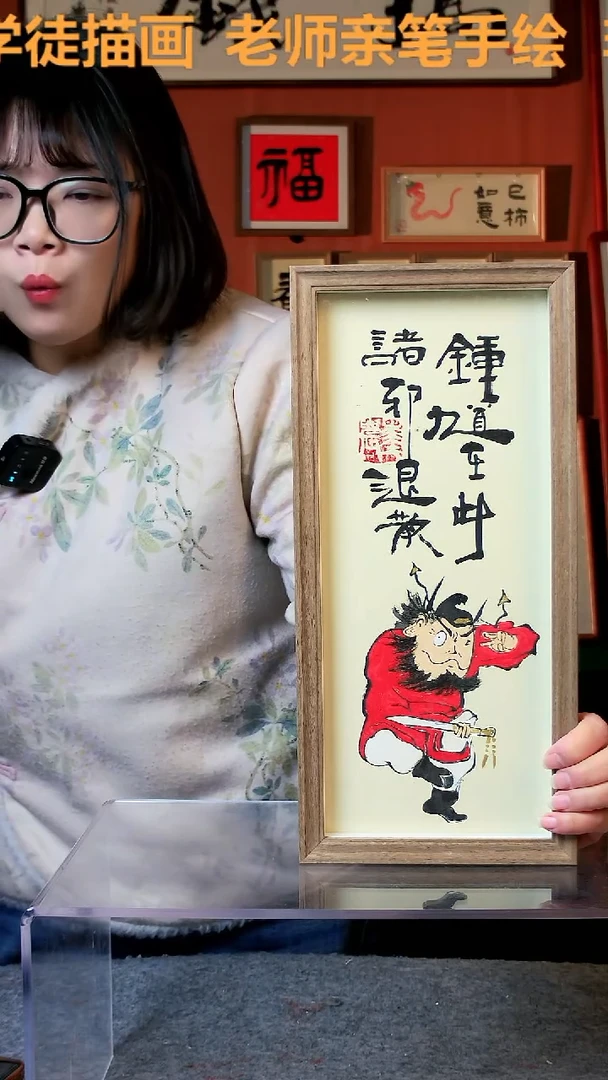 学徒描画 老师亲笔手绘
福
巳柿
如意
鍾馗在此
諸邪退散